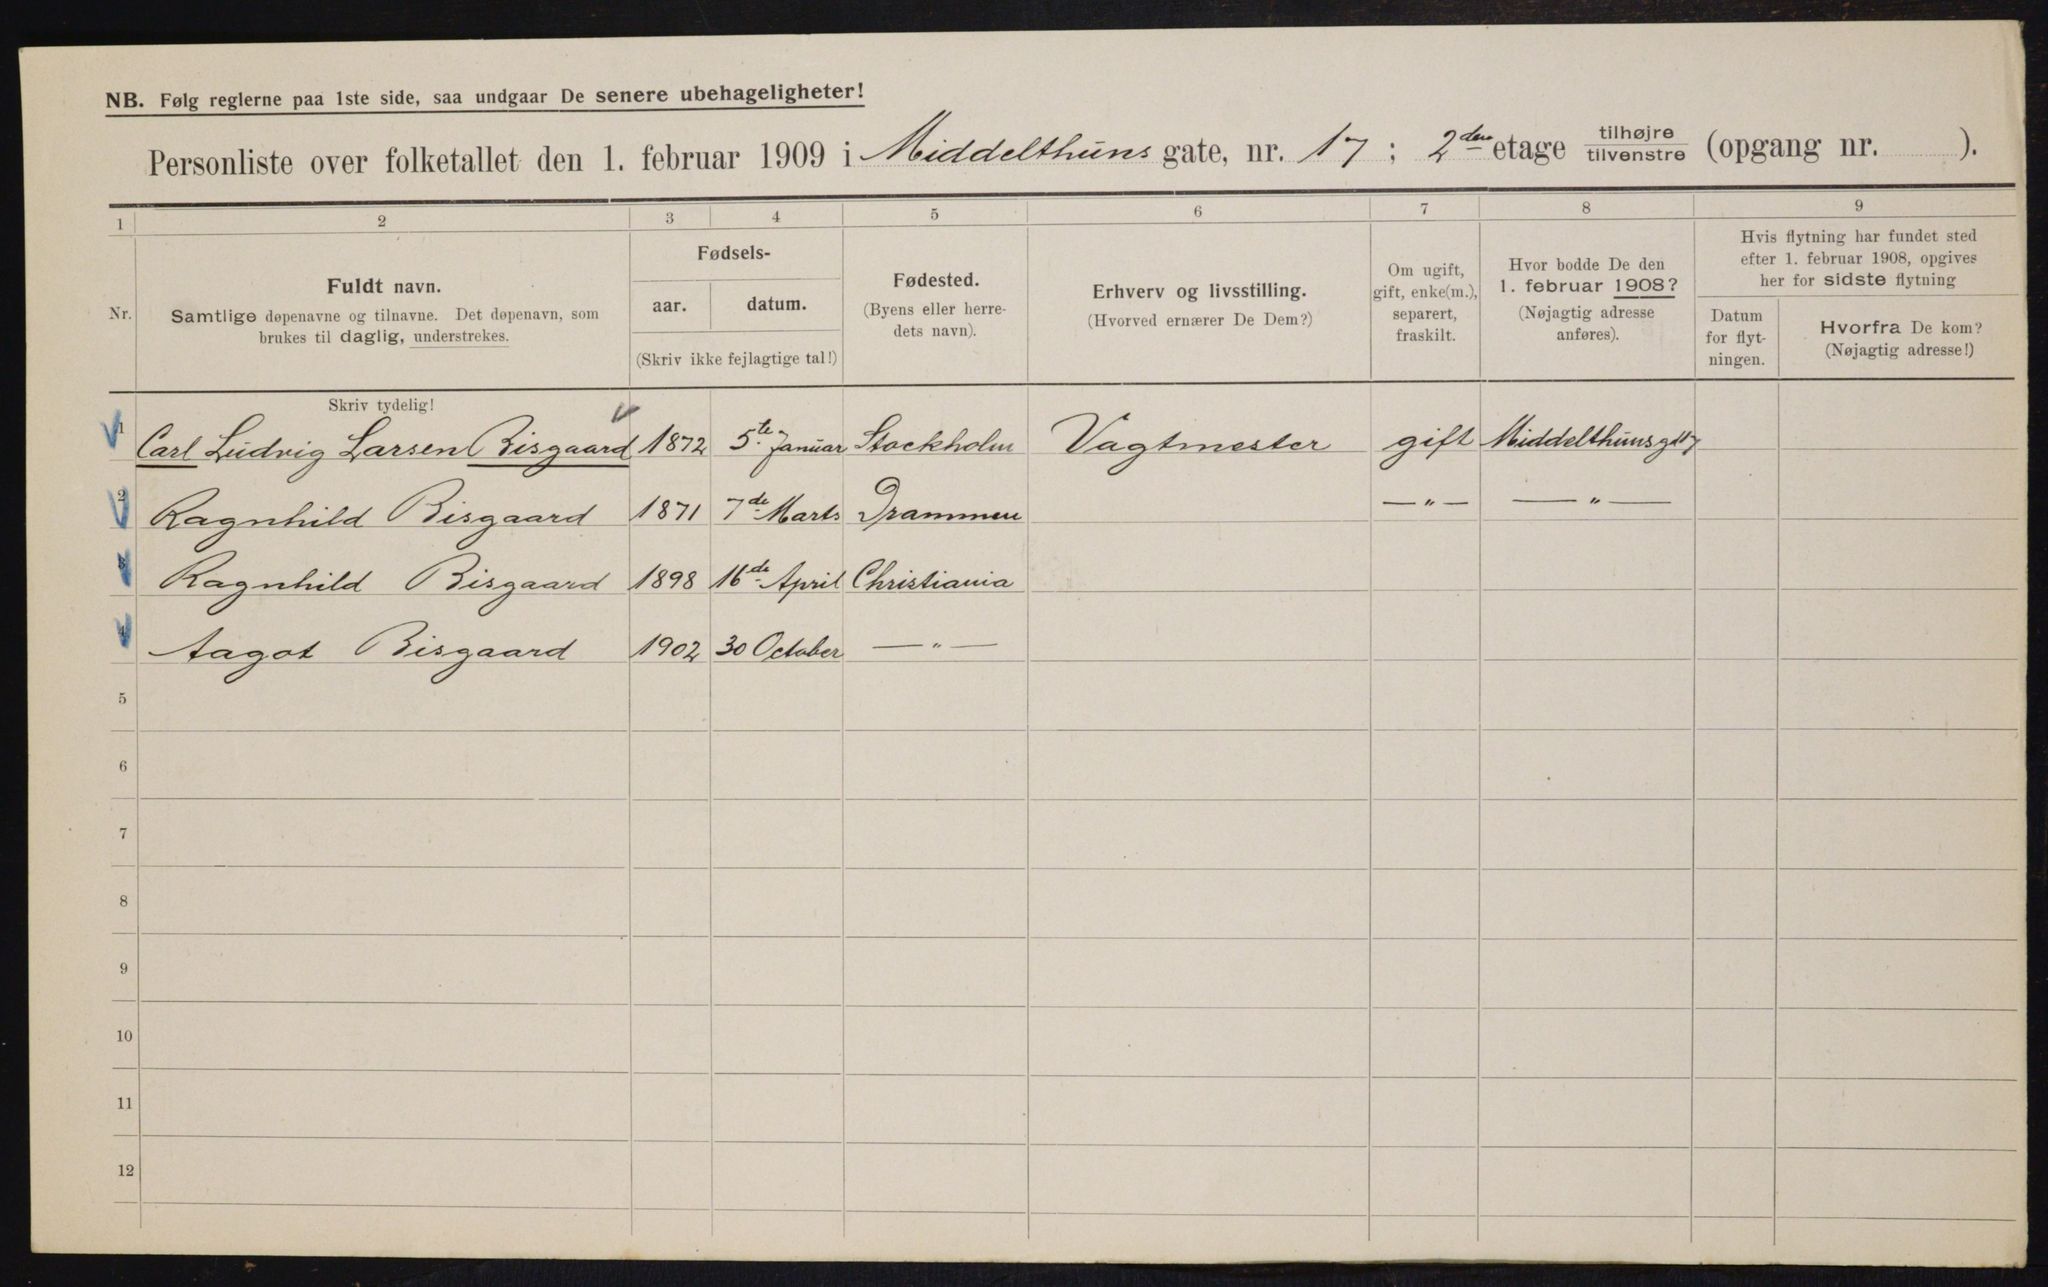 NB. Følg reglerne paa 1ste side, saa undgaar De senere ubehageligheter!
Personliste over folketallet den 1. februar 1909 i Middelthuns gate, nr. 17 ; 2den etage tilhøjre tilvenstre (opgang nr. ).
1 2 3 4 5 6 7 8 9
Nr.
Fuldt navn.
Samtlige døpenavne og tilnavne. Det døpenavn, som
brukes til daglig, understrekes.
Fødsels-
aar. datum.
(Skriv ikke fejlagtige tal!)
Fødested.
(Byens eller herre-
dets navn).
Erhverv og livsstilling.
(Hvorved ernærer De Dem?)
Om ugift,
gift, enke(m.),
separert,
fraskilt.
Hvor bodde De den
1. februar 1908?
(Nøjagtig adresse
anføres).
Hvis flytning har fundet sted
efter 1. februar 1908, opgives
her for sidste flytning
Datum
for flyt-
ningen.
Hvorfra De kom?
(Nøjagtig adresse!)
Skriv tydelig!
1 Carl Ludvig Larsen Bisgaard 1872 5te Januar Stockholm Vagtmester gift Middelthunsgt 17
2 Ragnhild Bisgaard 1871 7de Marts Drammen — " — — " —
3 Ragnhild Bisgaard 1898 16de April Christiania
4 Aagot Bisgaard 1902 30 October — " —
5
6
7
8
9
10
11
12